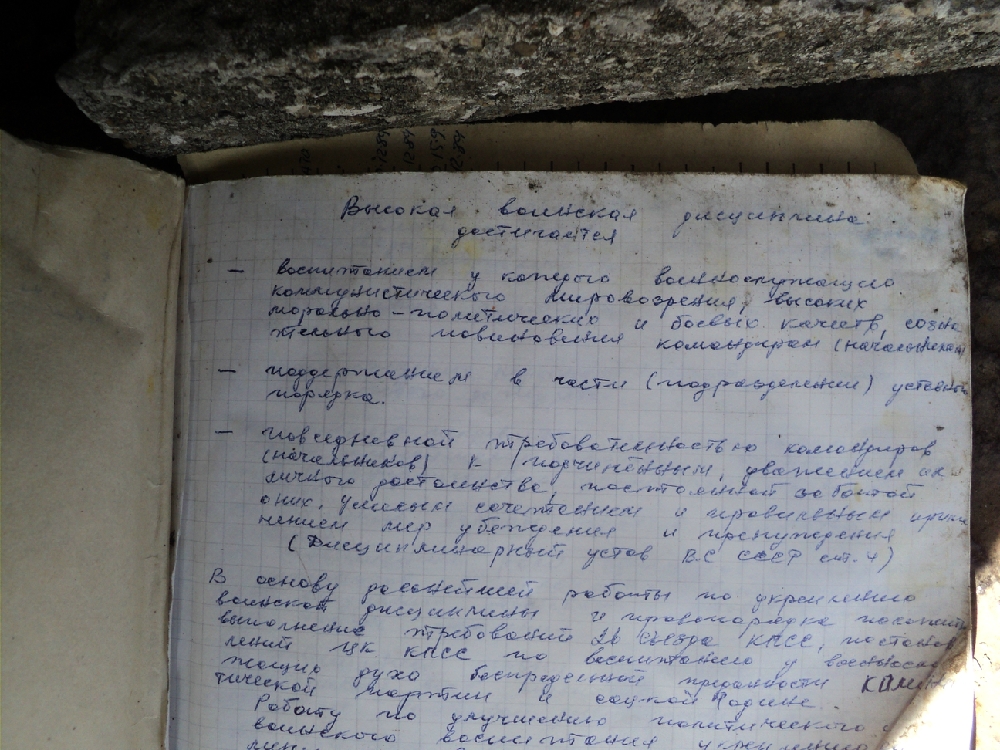 Высокая воинская дисциплина
достигается
— воспитанием у каждого военнослужащего
коммунистического мировозрения, высоких
морально-политических и боевых качеств, созна
тельного повиновения командирам (начальникам
— поддержанием в части (подразделении) уставного
порядка.
— повседневной требовательностью командиров
(начальников) к подчинённым, уважением их
личного достоинства, постоянной заботой
о них, умелым сочетанием и правильным приме
нением мер убеждения и принуждения
(Дисциплинарный устав ВС СССР ст. 4)
В основу дальнейшей работы по укреплению
воинской дисциплины и правопорядка положить
выполнение требований съезда КПСС, постанов
лений ЦК КПСС по воспитанию у военнослу
жащих духа беспредельной преданности Коммунис
тической партии и Родине.
Работу по улучшению политического и
воинского воспитания укреплению